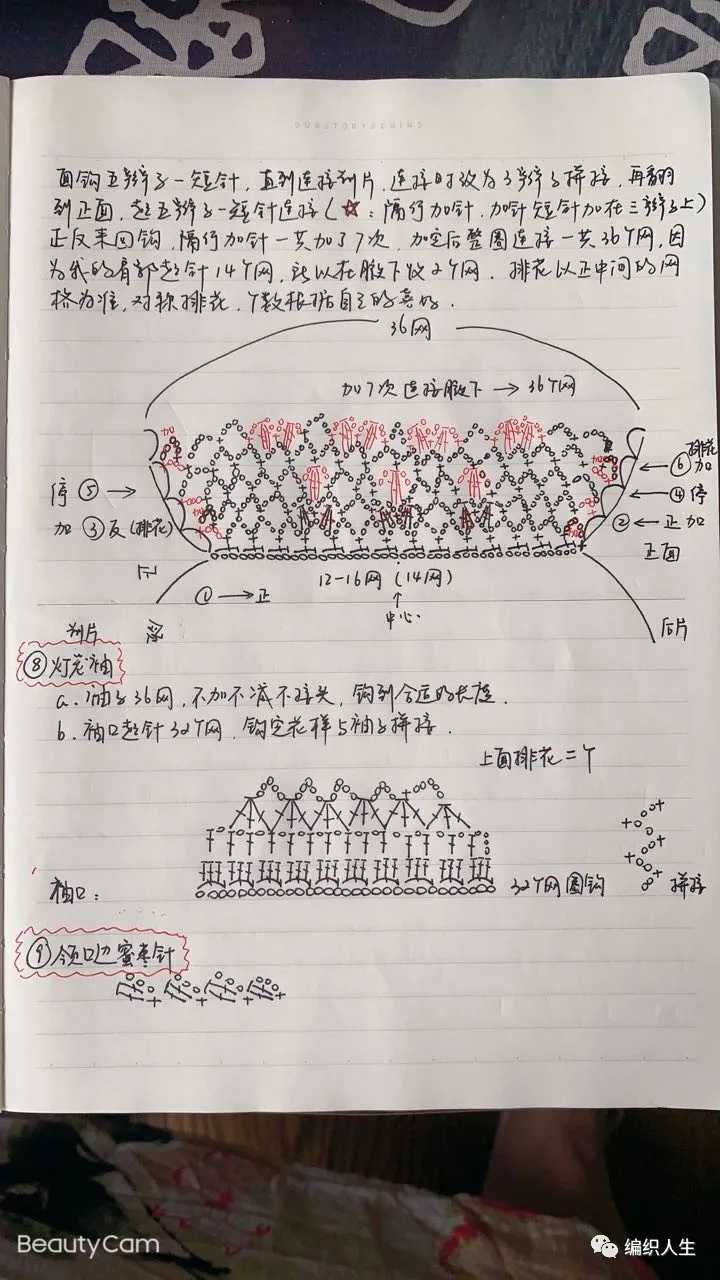 面钩五辫子一短针，直到连接前片，连接时改为3辫子拼接，再翻
到正面，起五辫子一短针连接（☆：隔行加针，加针短针加在三辫子上）
正反来回钩，隔行加针一共加了7次，加完后整圈连接一共36个网，因
为我的肩部起针14个网，所以在腋下收2个网。排花以正中间的网
格为准，对称排花，个数根据自己的喜好．
36网
加7次连接腋下 → 36个网
排花
⑥加
停 ⑤ →
← ④ 停
加 ③ 反（排花）
② ← 正 加
正面
12-16网（14网）
① → 正
↑
中心
前片
后片
⑧灯笼袖
a．袖子36网，不加不减不接头，钩到合适的长度．
b．袖口起针32个网，钩完花样与袖子拼接．
上面排花=个
袖口：
32个网圈钩
拼接
⑨领口边蜜枣针
BeautyCam
编织人生